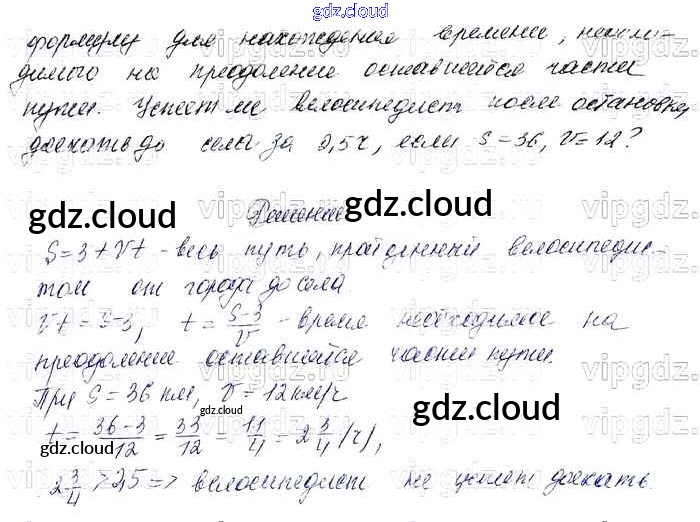 gdz.cloud
формулу для нахождения времени, необхо-
димого на преодоление оставшейся части
пути. Успеет ли велосипедист после остановки
доехать до села за 2,5ч, если S=36, V=12?
gdz.cloud Решение gdz.cloud
S=3+Vt - весь путь, пройденный велосипедис-
том от города до села.
Vt=S-3, t=\frac{S-3}{V} - время необходимое на
преодоление оставшейся части пути.
При S=36 км, V=12км/ч gdz.cloud
gdz.cloud
t=\frac{36-3}{12}=\frac{33}{12}=\frac{11}{4}=2\frac{3}{4}(ч),
gdz.cloud
2\frac{3}{4}>2,5=> велосипедист не успеет доехать.